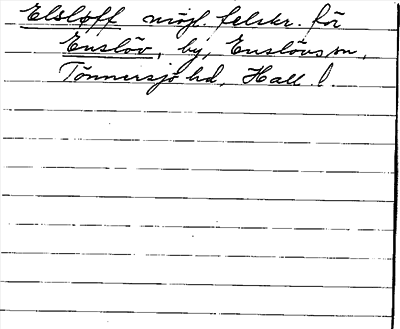 Elsløff möjl. felskr. för
Enslöv, by, Enslövs sn,
Tönnersjö hd, Hall. l